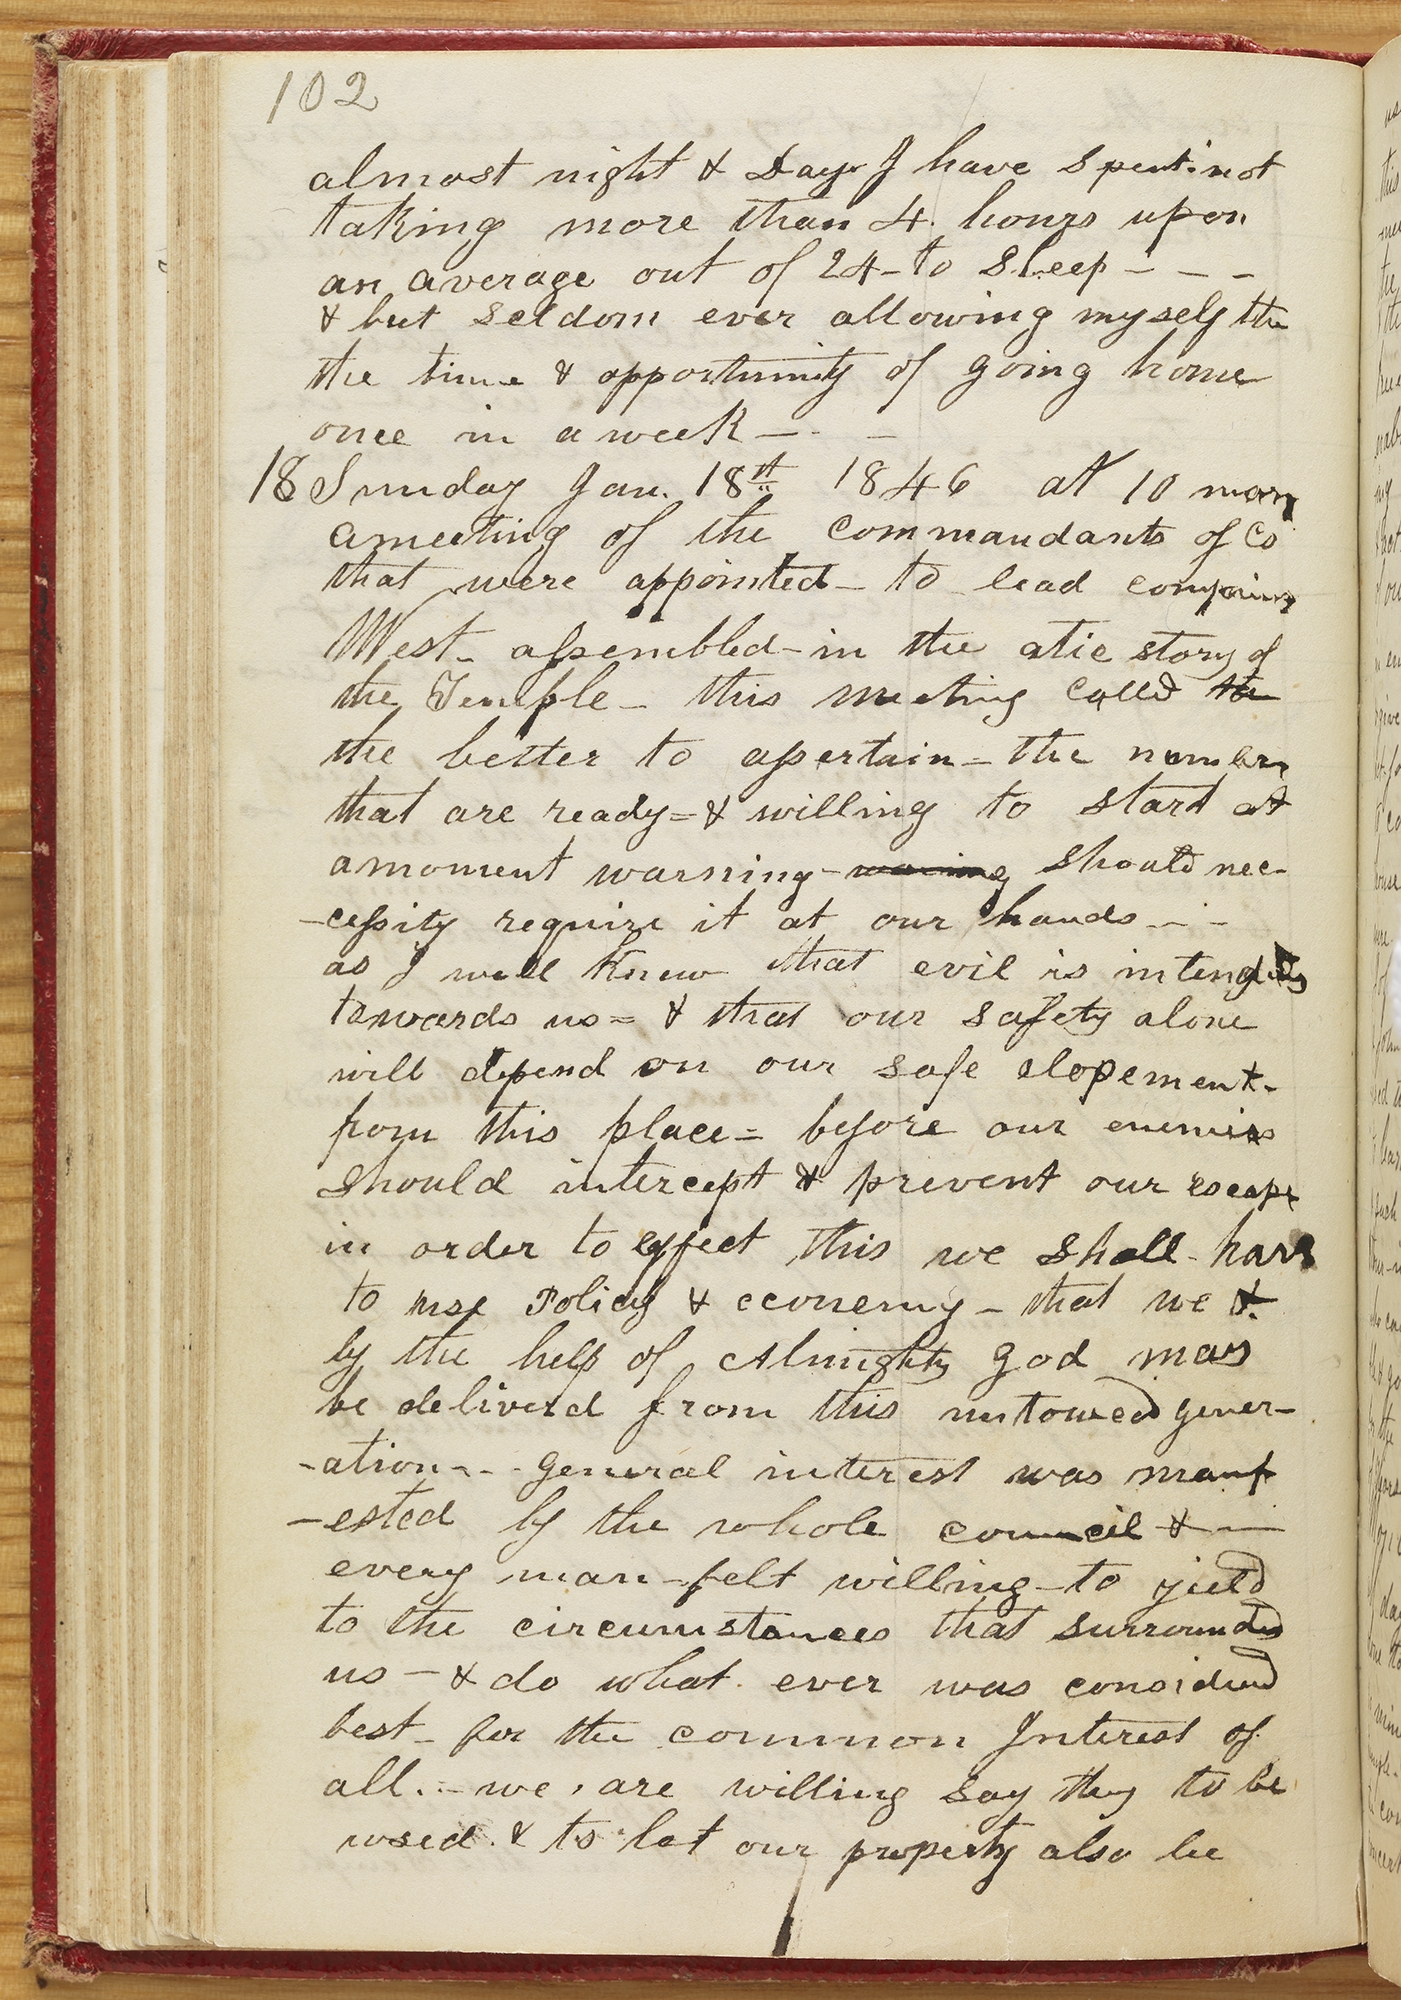 102
almost night & Day I have spent. not
taking more than 4 hours upon
an average out of 24 - to Sleep - - -
& but seldom ever allowing myself the
the time & opportunity of going home
once in a week - - -
18 Sunday Jan. 18st 1846 at 10 morn
a meeting of the Commandants of Co
that were appointed - to lead companies
West - assembled - in the atic story of
the Temple - this meeting called the
the better to assertain = the numbers
that are ready = & willing to start at
a moment warning - warning should nec-
-cessity require it at our hands - -
as I well know that evil is intended
towards us = & that our safety alone
will depend on our safe elopement -
from this place = before our enemies
should intercept & prevent our escape
in order to effect this we shall - have
to use Policy & economy - that we &
by the help of Almighty God may
be deliverd from this untowed gener-
-ation - - - general interest was manif
-ested by the whole council & -
every man - felt willing - to yield
to the circumstances that surrounded
us - & do what ever was considerd
best - for the common Interest of
all. - we are willing say they to be
used & to let our property also be